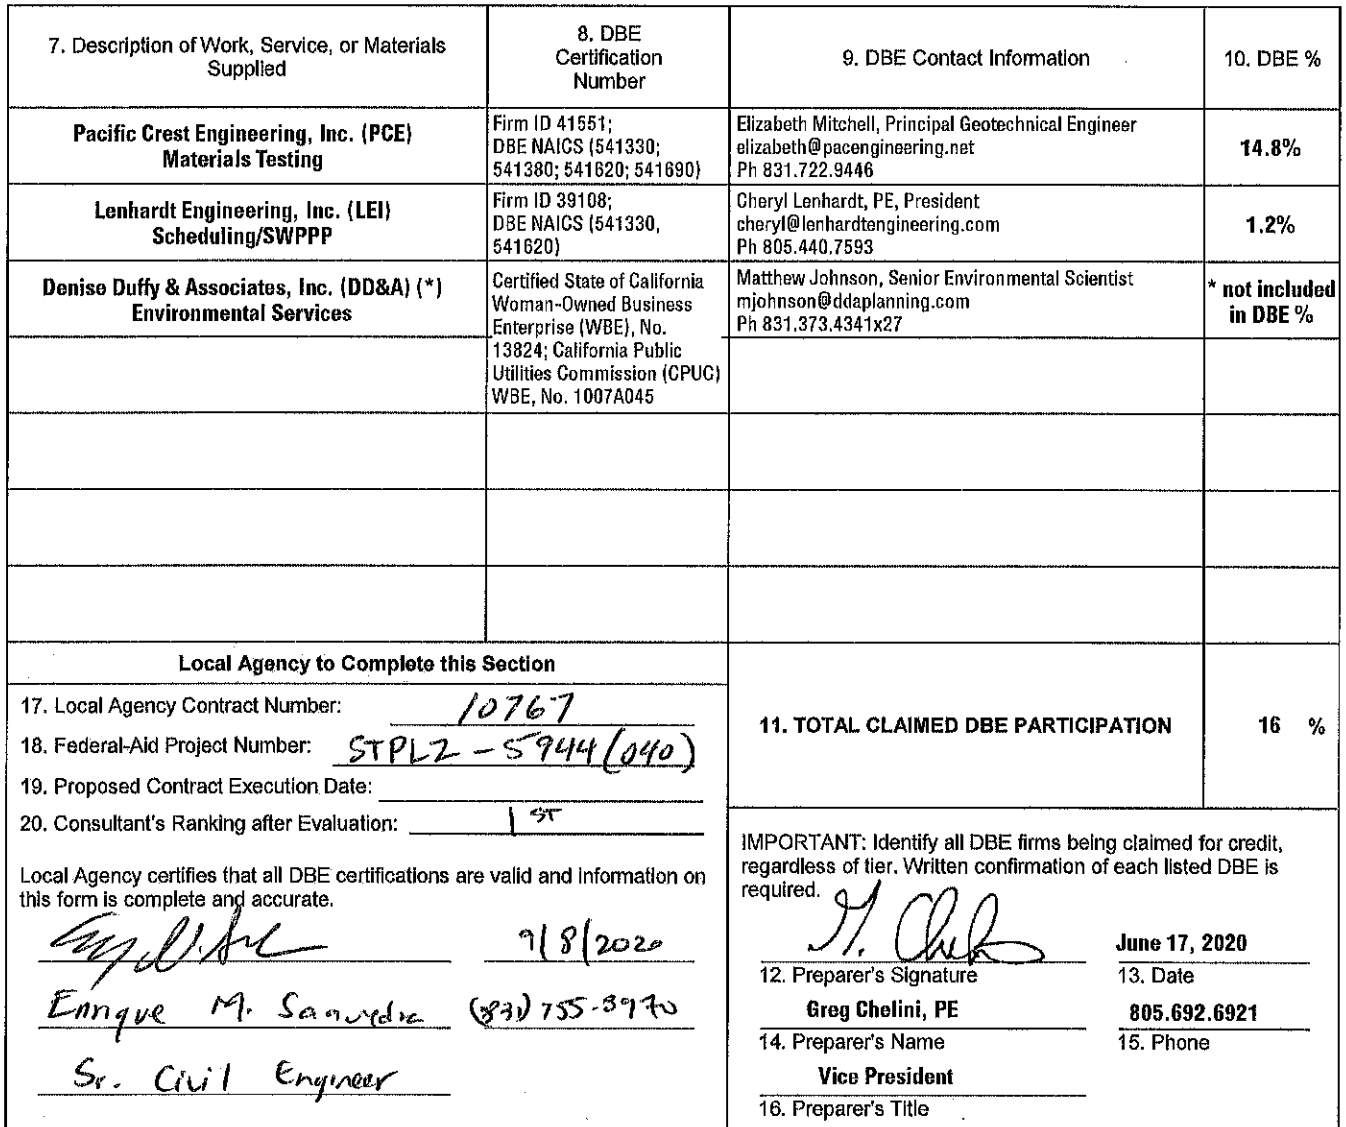 7. Description of Work, Service, or Materials
Supplied
8. DBE
Certification
Number
9. DBE Contact Information
10. DBE %
Pacific Crest Engineering, Inc. (PCE)
Materials Testing
Firm ID 41551;
DBE NAICS (541330;
541380; 541620; 541690)
Elizabeth Mitchell, Principal Geotechnical Engineer
elizabeth@pacengineering.net
Ph 831.722.9446
14.8%
Lenhardt Engineering, Inc. (LEI)
Scheduling/SWPPP
Firm ID 39108;
DBE NAICS (541330,
541620)
Cheryl Lenhardt, PE, President
cheryl@lenhardtengineering.com
Ph 805.440.7593
1.2%
Denise Duffy & Associates, Inc. (DD&A) (*)
Environmental Services
Certified State of California
Woman-Owned Business
Enterprise (WBE), No.
13824; California Public
Utilities Commission (CPUC)
WBE, No. 1007A045
Matthew Johnson, Senior Environmental Scientist
mjohnson@ddaplanning.com
Ph 831.373.4341x27
* not included
in DBE %
Local Agency to Complete this Section
17. Local Agency Contract Number: 10767
18. Federal-Aid Project Number: STPLZ - 5944 (040)
19. Proposed Contract Execution Date:
20. Consultant's Ranking after Evaluation: 1 ST
Local Agency certifies that all DBE certifications are valid and information on
this form is complete and accurate.
9/8/2020
Enrique M. Saavedra (831) 755-8970
Sr. Civil Engineer
11. TOTAL CLAIMED DBE PARTICIPATION
16 %
IMPORTANT: Identify all DBE firms being claimed for credit,
regardless of tier. Written confirmation of each listed DBE is
required.
June 17, 2020
12. Preparer's Signature
13. Date
Greg Chelini, PE
805.692.6921
14. Preparer's Name
15. Phone
Vice President
16. Preparer's Title